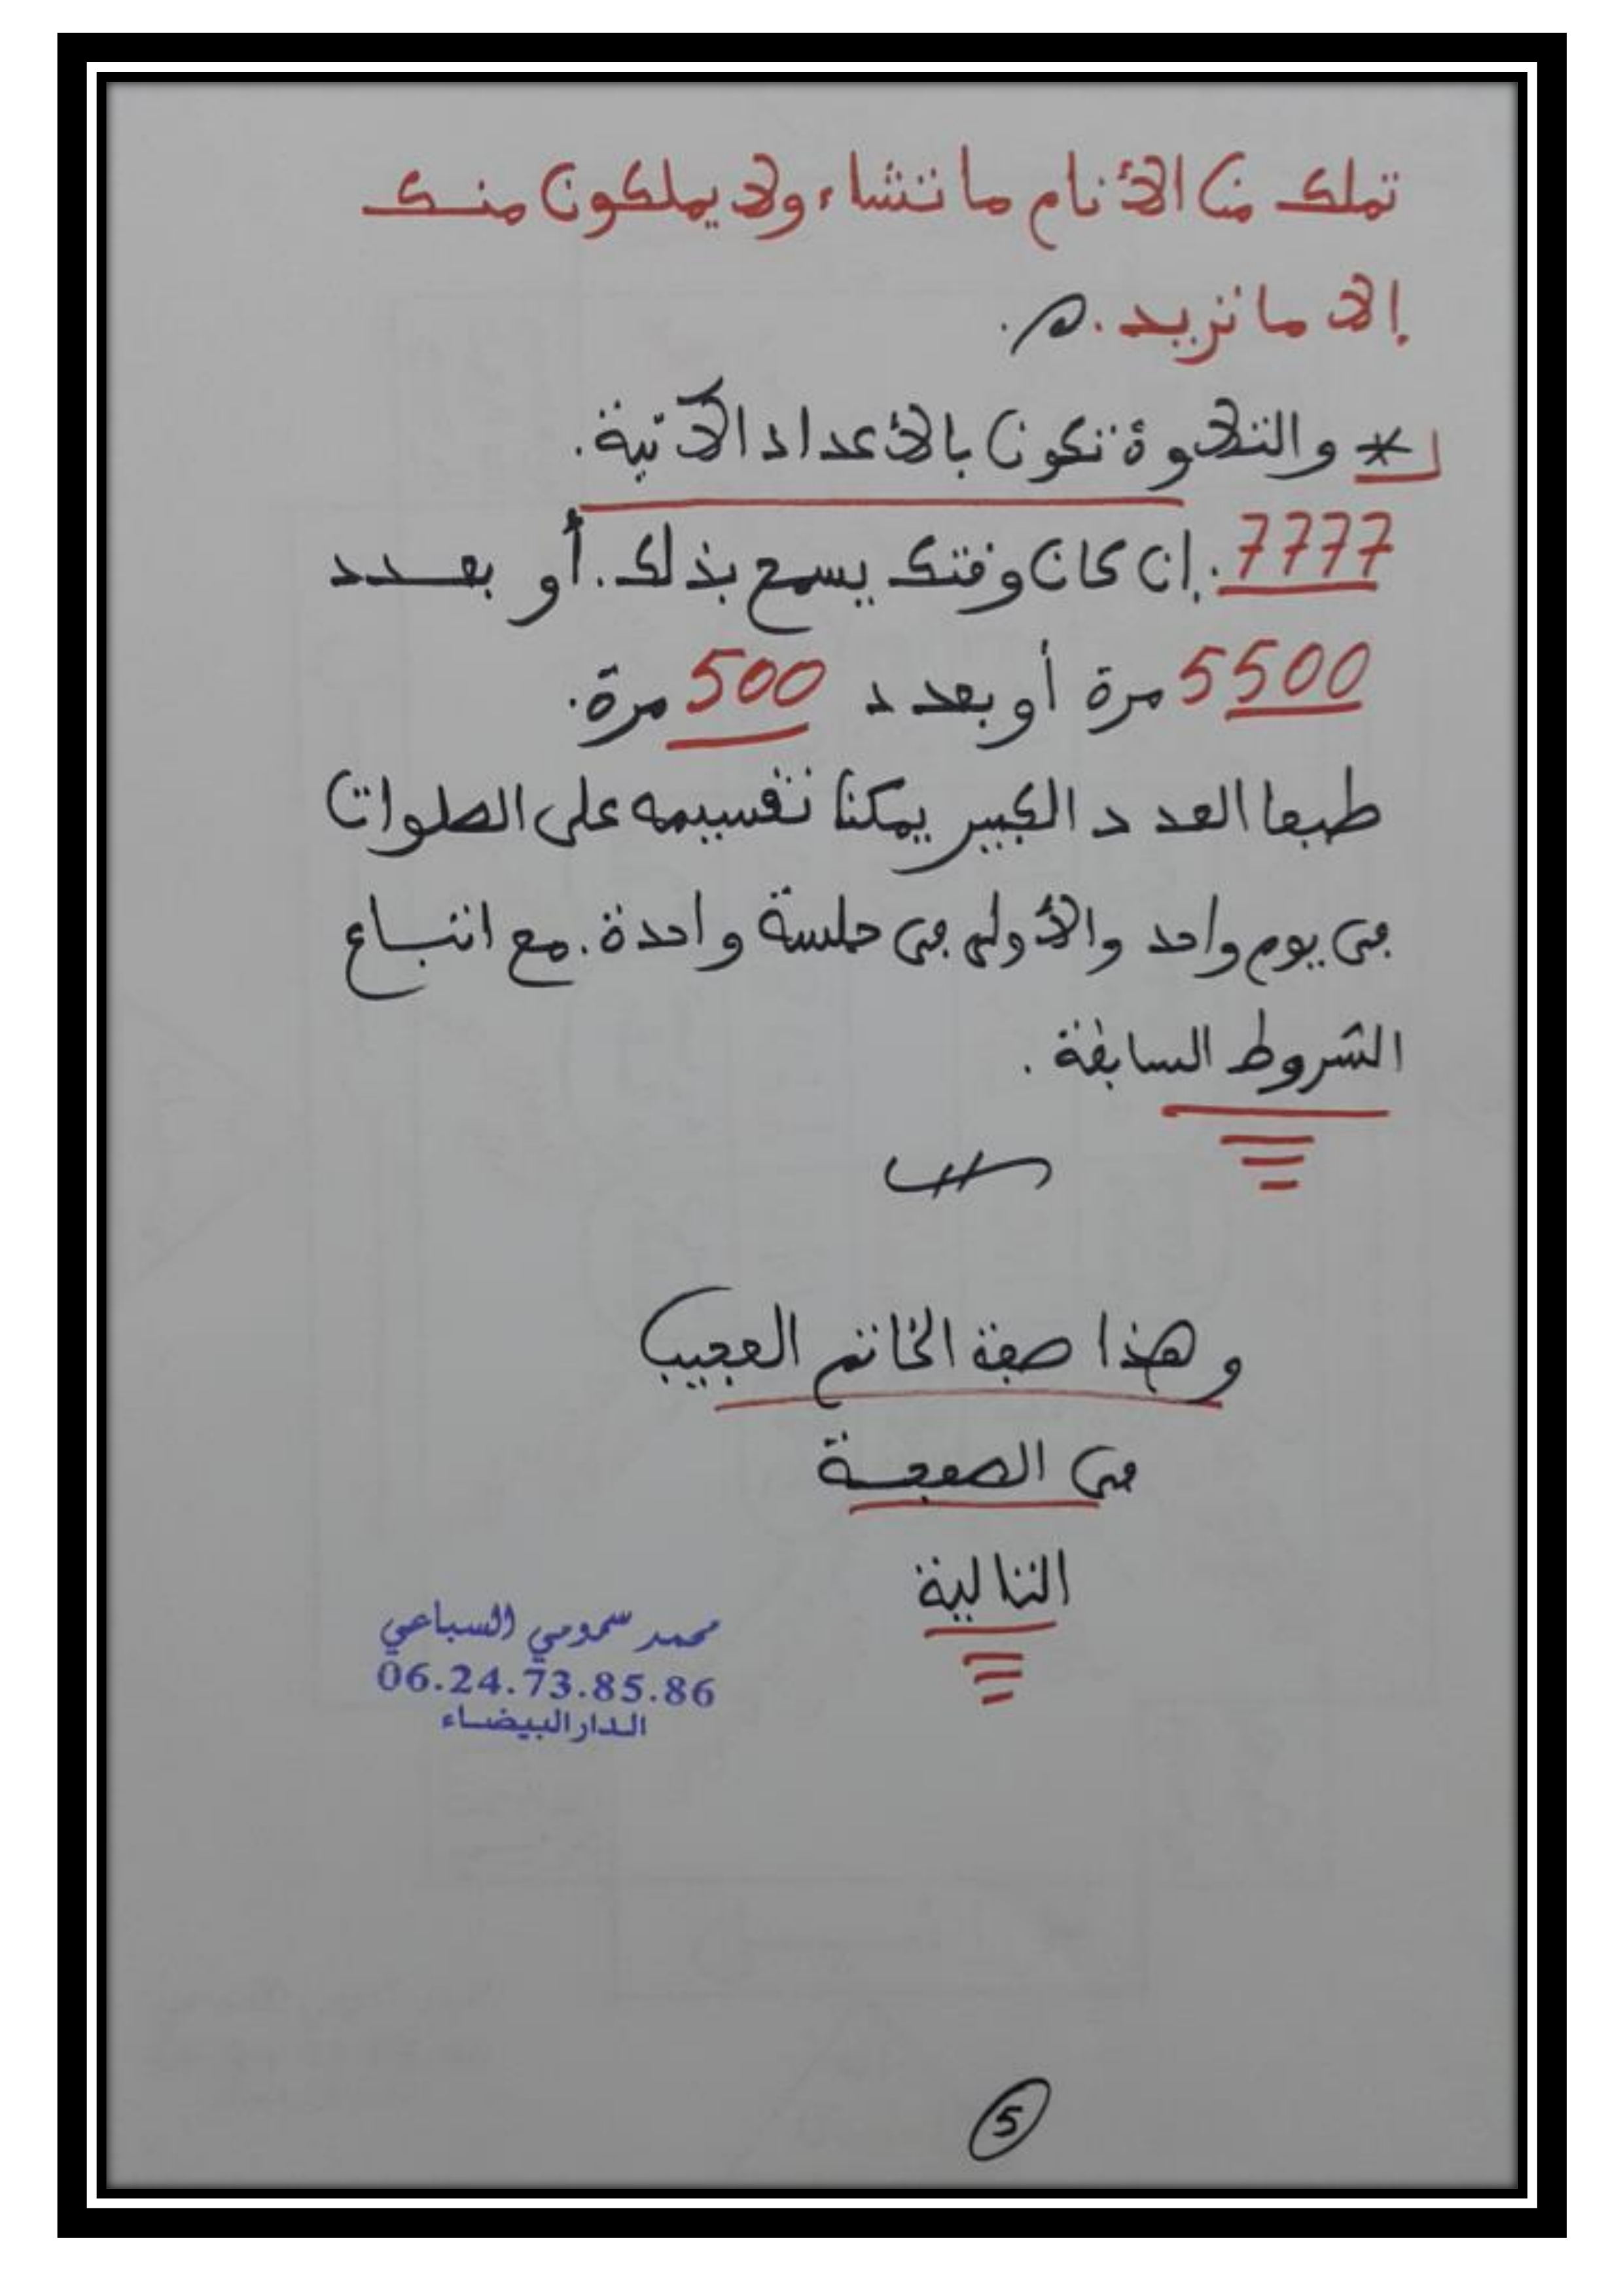 تملك من الأنام ما تشاء ولا يملكون منك
إلا ما تريد. هـ.
* والتلاوة تكون بالأعداد الآتية.
7777. إن كان وقتك يسمح بذلك. أو بعدد
5500 مرة أو بعدد 500 مرة.
طبعا العدد الكبير يمكنا تقسيمه على الصلوات
في يوم واحد والأولى في جلسة واحدة. مع اتباع
الشروط السابقة.
وهذا صفة الخاتم العجيب
في الصفحة
التالية
محمد سمومي السباعي
06.24.73.85.86
الدار البيضاء
5